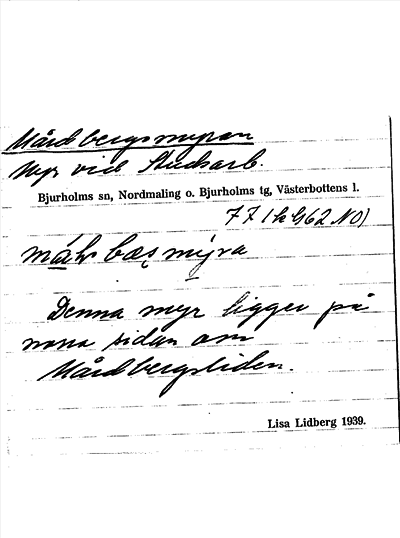 Mårdbergsmyran
Myr vid Studsarb.
Bjurholms sn, Nordmaling o. Bjurholms tg, Västerbottens l.
bæs mýra
Denna myr ligger på
norra sidan om
Mårdbergsliden.
Lisa Lidberg 1939.